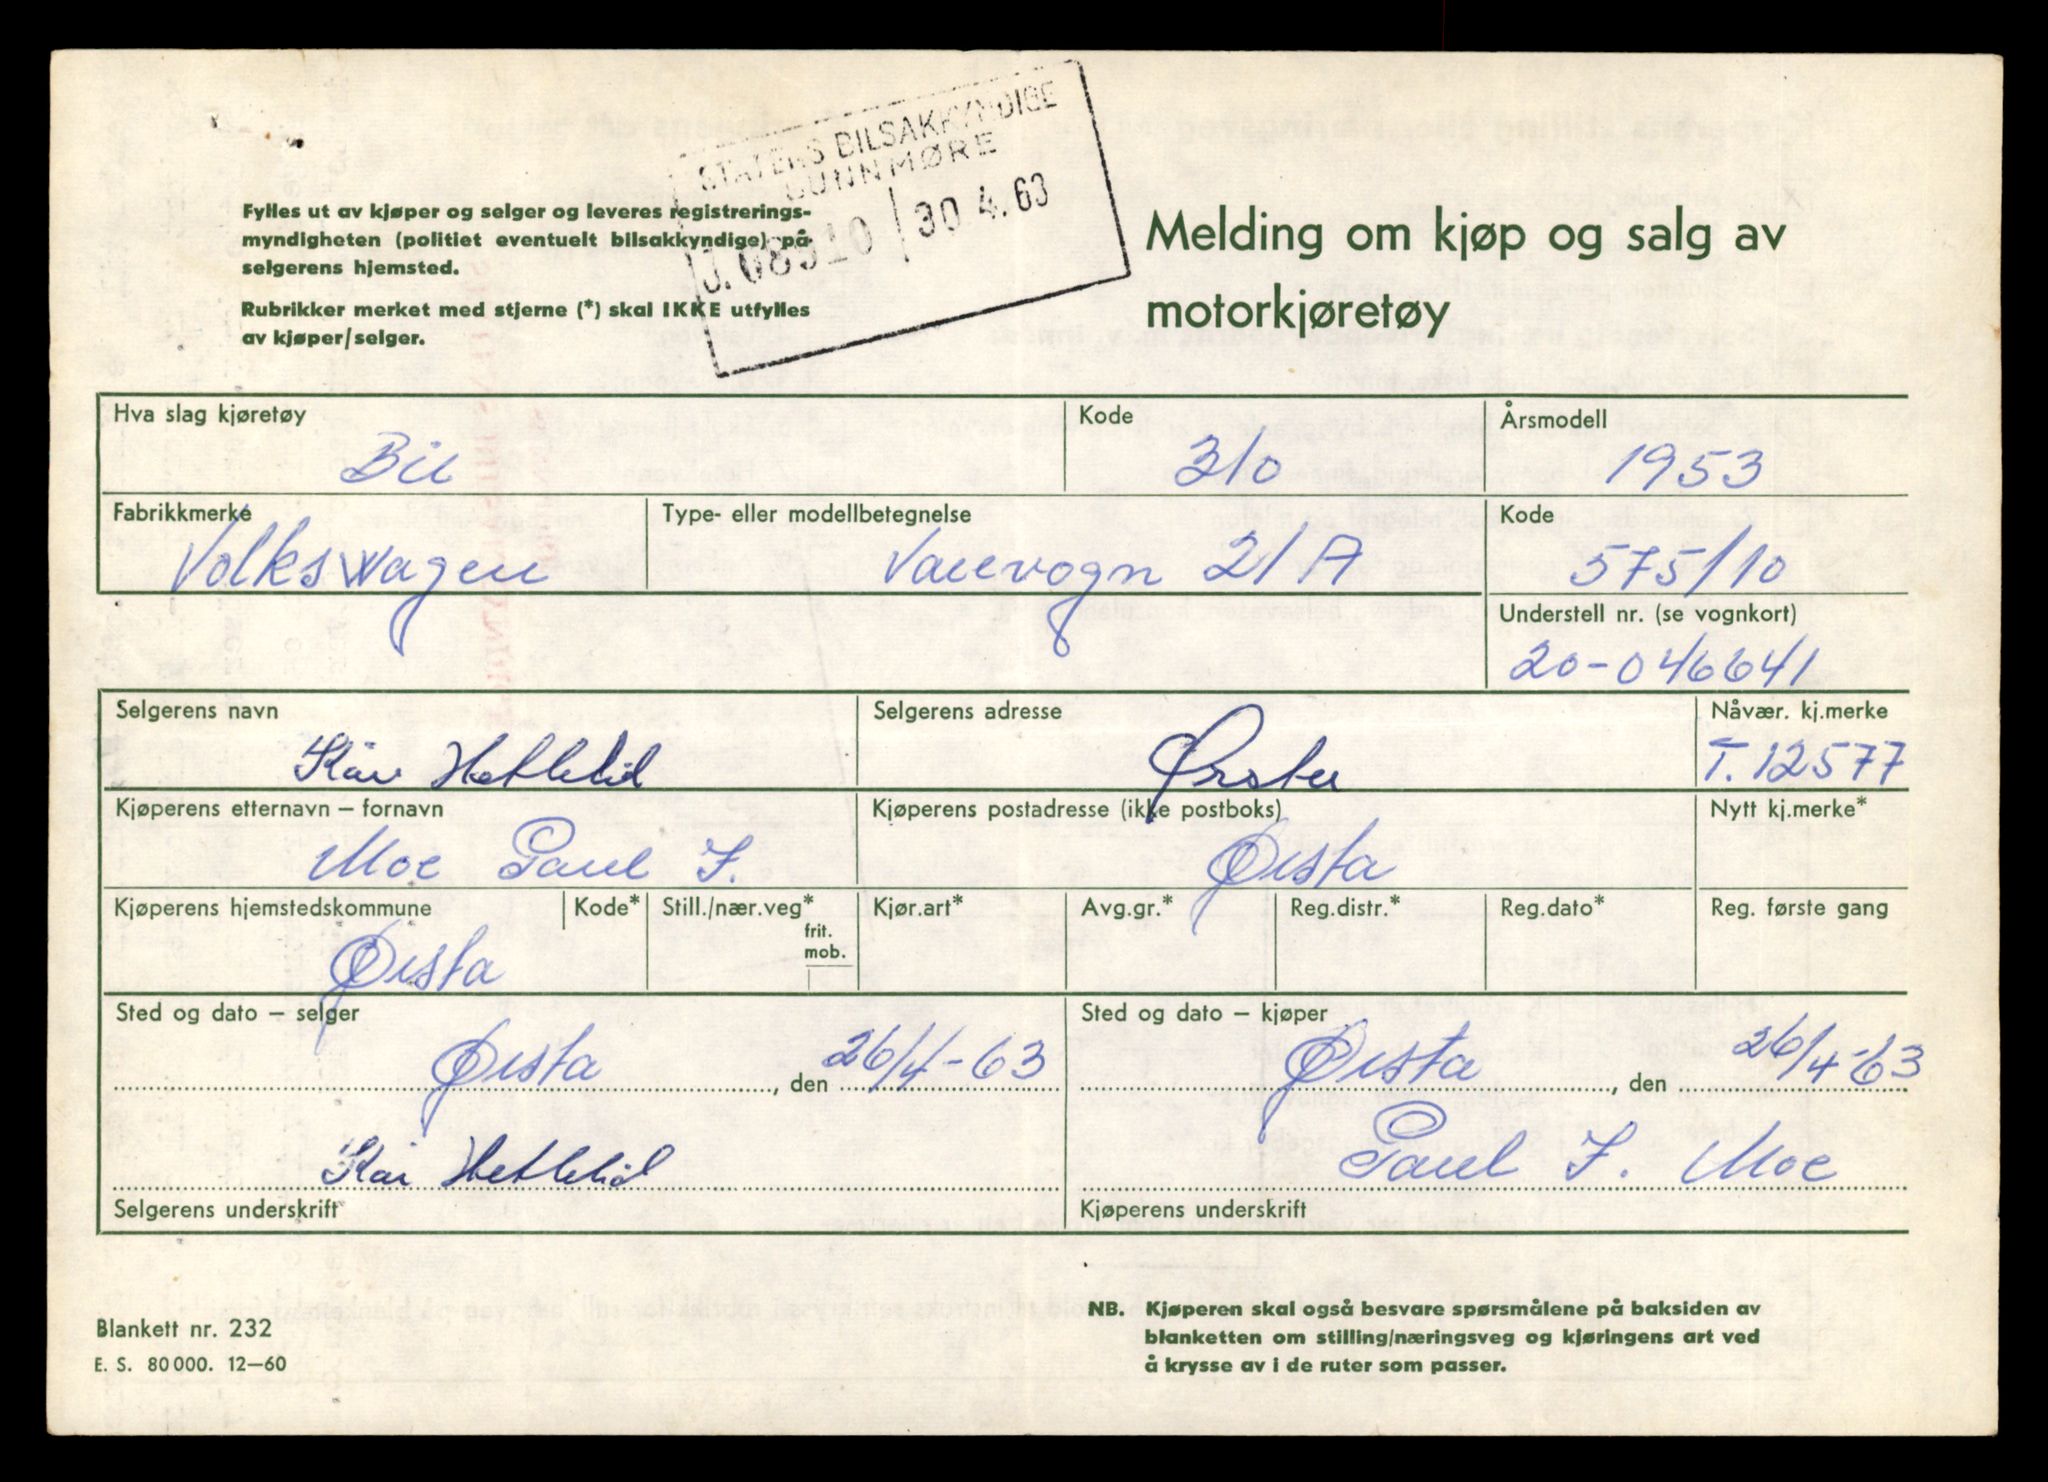 STATENS BILSAKKYNDIGE
SUNNMØRE
30.4.63
Fylles ut av kjøper og selger og leveres registrerings-
myndigheten (politiet eventuelt bilsakkyndige) på
selgerens hjemsted.
Rubrikker merket med stjerne (*) skal IKKE utfylles
av kjøper/selger.
Melding om kjøp og salg av
motorkjøretøy
Hva slag kjøretøy Kode Årsmodell
Bil 310 1953
Fabrikkmerke Type- eller modellbetegnelse Kode
Volkswagen Varevogn 21 A 575/10
Understell nr. (se vognkort)
20-046641
Selgerens navn Selgerens adresse Nåvær. kj.merke
Kåre Ørsta T.12577
Kjøperens etternavn – fornavn Kjøperens postadresse (ikke postboks) Nytt kj.merke*
Moe Paul I. Ørsta
Kjøperens hjemstedskommune Kode* Still./nær.veg* Kjør.art* Avg.gr.* Reg.distr.* Reg.dato* Reg. første gang
frit.
mob.
Ørsta
Sted og dato – selger Sted og dato – kjøper
Ørsta, den 26/4-63 Ørsta, den 26/4-63
Kåre Paul I. Moe
Selgerens underskrift Kjøperens underskrift
Blankett nr. 232
E. S. 80 000. 12–60
NB. Kjøperen skal også besvare spørsmålene på baksiden av
blanketten om stilling/næringsveg og kjøringens art ved
å krysse av i de ruter som passer.